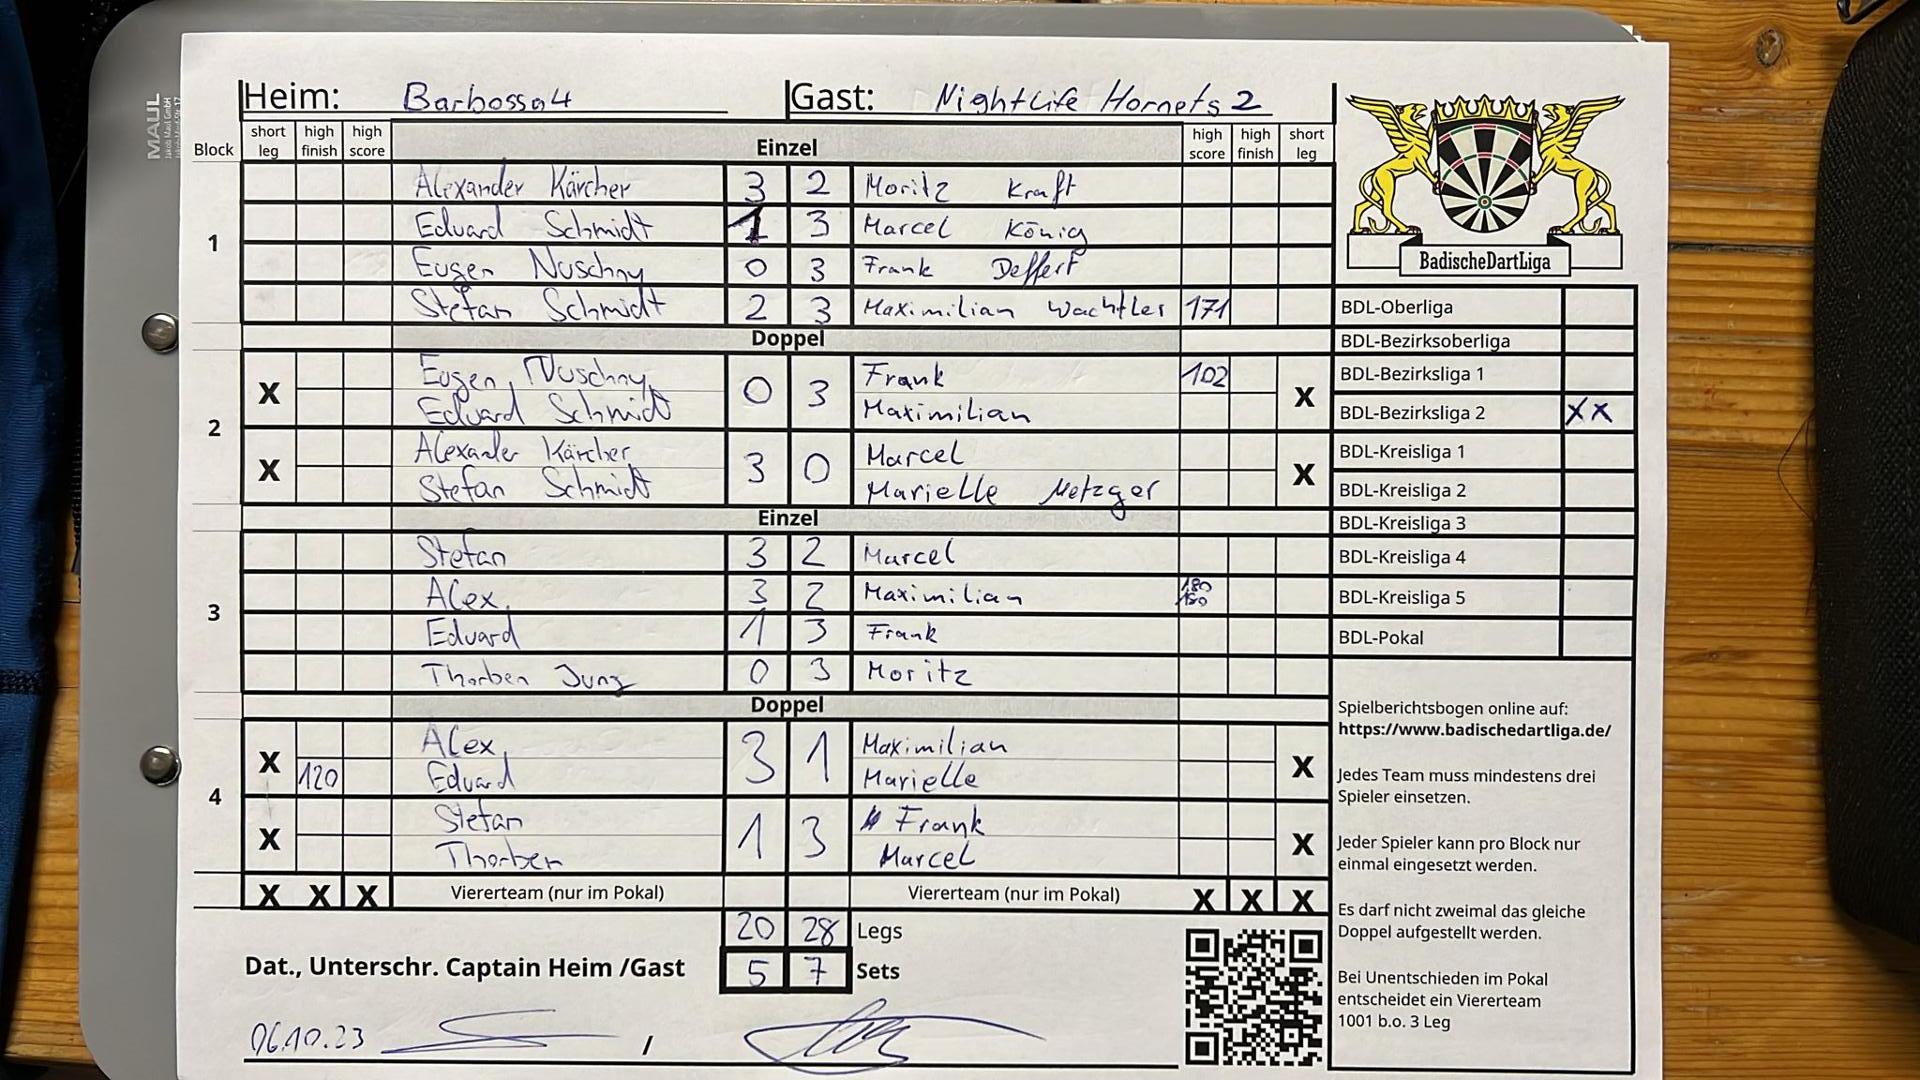 MAUL
Heim: Barbossa 4 Gast: Nightlife Hornets 2
Block short leg high finish high score Einzel high score high finish short leg
1
Alexander Kärcher 3 2 Moritz Kraft
Eduard Schmidt 1 3 Marcel König
Eugen Nuschny 0 3 Frank Deffert
Stefan Schmidt 2 3 Maximilian Wachtler 171
Doppel
2
X Eugen Nuschny 0 3 Frank 102 X
Eduard Schmidt Maximilian
X Alexander Kärcher 3 0 Marcel X
Stefan Schmidt Marielle Metzger
Einzel
3
Stefan 3 2 Marcel
Alex 3 2 Maximilian 180
180
Eduard 1 3 Frank
Thorben Jung 0 3 Moritz
Doppel
4
X Alex 3 1 Maximilian X
120 Eduard Marielle
X Stefan 1 3 Frank X
Thorben Marcel
X X X Viererteam (nur im Pokal) Viererteam (nur im Pokal) X X X
20 28 Legs
Dat., Unterschr. Captain Heim /Gast 5 7 Sets
06.10.23 /
BadischeDartLiga
BDL-Oberliga
BDL-Bezirksoberliga
BDL-Bezirksliga 1
BDL-Bezirksliga 2 XX
BDL-Kreisliga 1
BDL-Kreisliga 2
BDL-Kreisliga 3
BDL-Kreisliga 4
BDL-Kreisliga 5
BDL-Pokal
Spielberichtsbogen online auf:
https://www.badischedartliga.de/
Jedes Team muss mindestens drei
Spieler einsetzen.
Jeder Spieler kann pro Block nur
einmal eingesetzt werden.
Es darf nicht zweimal das gleiche
Doppel aufgestellt werden.
Bei Unentschieden im Pokal
entscheidet ein Viererteam
1001 b.o. 3 Leg